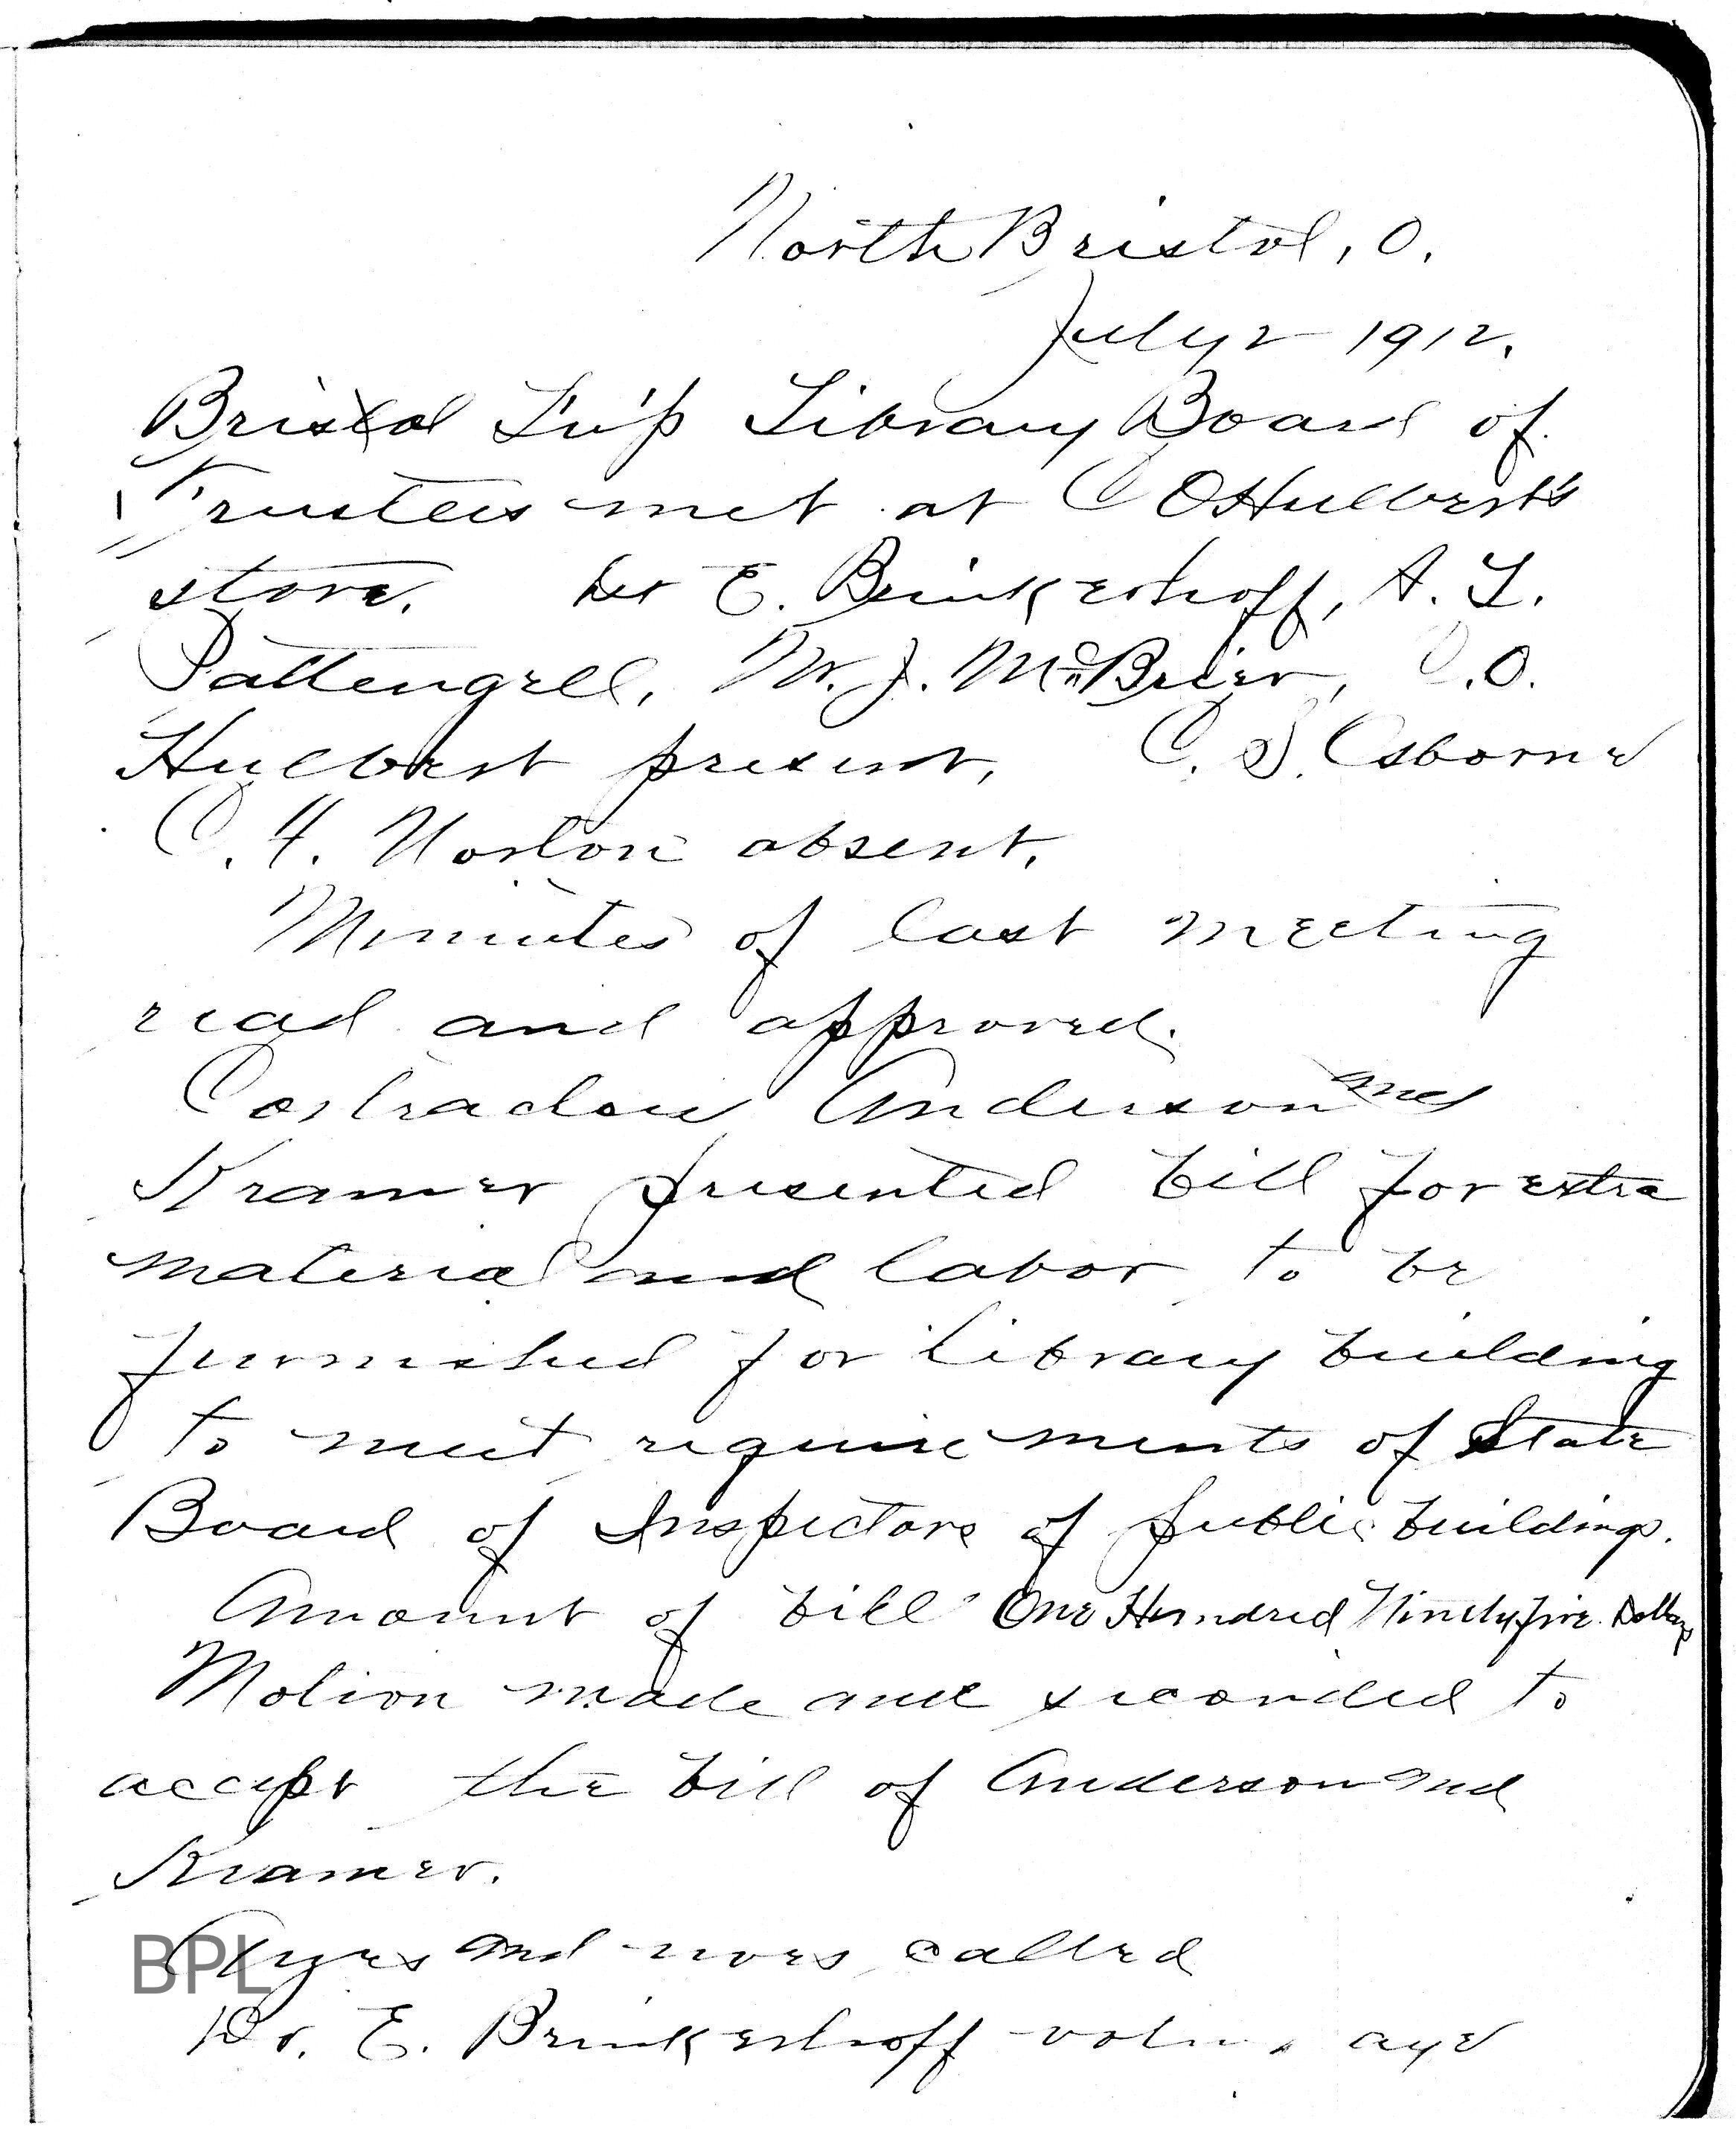 North Bristol, O.
July 2 1912.
Bristol T'w'p Library Board of
Trustees met at C O Hulbert's
store. Dr E. Brinkerhoff, A. L.
Pattengell, W. J. McBrier, C.O.
Hulbert present, C. S. Osborne
C. H. Norton absent.
Minutes of last meeting
read and approved.
Anderson and
Kramer presented bill for extra
material and labor to be
furnished for library building
to meet requirements of State
Board of Inspectors of public buildings.
Amount of bill One Hundred Ninety five Dollars
Motion made and seconded to
accept the bill of Anderson and
Kramer.
Ayes and noes called
Dr. E. Brinkerhoff aye
BPL